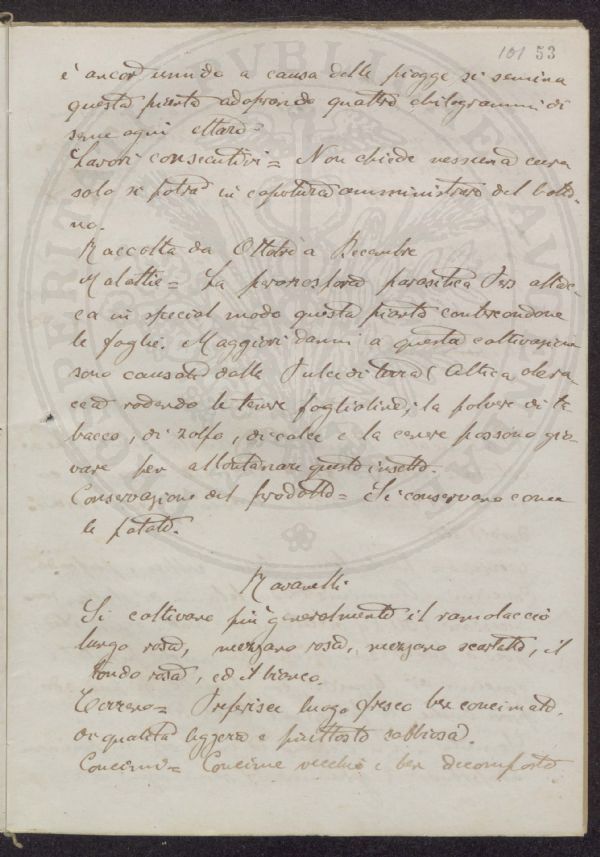 101 53
è ancor umido a causa delle piogge si semina
questa pianta adoprando quattro chilogrammi di
seme ogni ettaro.
Lavori consecutivi = Non chiede nessuna cura
solo si potrà in copertura amministrare del botti-
no.
Raccolta da Ottobre a Decembre
Malattie = La peronospora parasitica attac-
ca in special modo questa pianta contorcendone
le foglie. Maggiori danni a questa coltivazione
sono causati dalle Pulci di terra (Altica olera-
cea rodendo le tenere foglioline; la polvere di ta
bacco, di zolfo, di calce e la cenere possono gio-
vare per allontanare questo insetto.
Conservazione del prodotto = Si conservano come
le patate.
Ravanelli
Si coltivano più generalmente il ramolaccio
lungo rosa, mezzano rosa, mezzano scarlatto, il
tondo rosa, ed il bianco.
Terreno = Preferisce luogo fresco ben concimato.
di qualità leggera e piuttosto sabbiosa
Concimi = Concime vecchio e ben decomposto